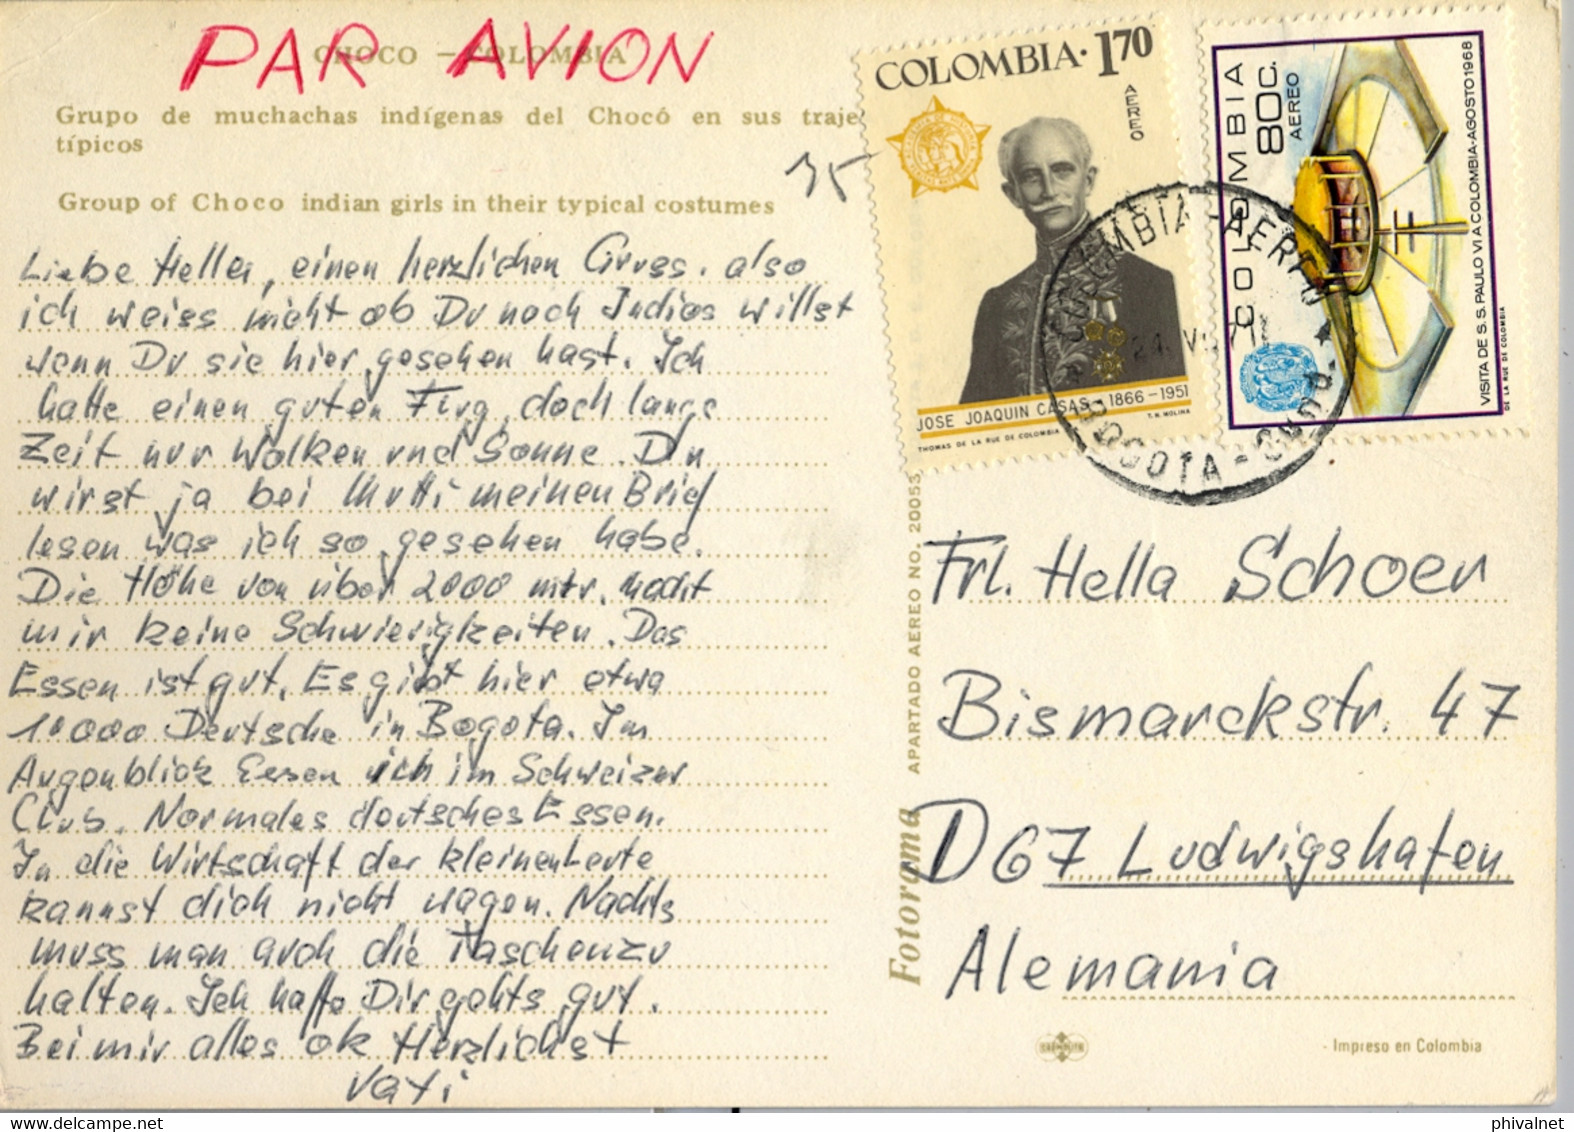 PAR AVION
CHOCO - COLOMBIA
Grupo de muchachas indígenas del Chocó en sus traje
típicos
Group of Choco indian girls in their typical costumes
35
Liebe Hella, einen herzlichen Gruss. also
ich weiss nicht ob Du noch Indios willst
wenn Du sie hier gesehen hast. Ich
hatte einen guten Flug, doch lange
Zeit nur Wolken und Sonne. Du
wirst ja bei Mutti meinen Brief
lesen was ich so gesehen habe.
Die Höhe von über 2000 mtr. macht
mir keine Schwierigkeiten. Das
Essen ist gut. Es gibt hier etwa
10000 Deutsche in Bogota. Im
Augenblick Essen ich im Schweizer
Club. Normales deutsches Essen.
In die Wirtschaft der kleinen Leute
kannst dich nicht wagen. Nachts
muss man auch die Taschen zu
halten. Ich hoffe Dir gehts gut.
Bei mir alles ok Herzlichst
Vati
COLOMBIA · 1.70
AEREO
JOSE JOAQUIN CASAS - 1866 - 1951
THOMAS DE LA RUE DE COLOMBIA
T. N. MOLINA
COLOMBIA
80C.
AEREO
VISITA DE S. S. PAULO VI A COLOMBIA-AGOSTO 1968
DE LA RUE DE COLOMBIA
COLOMBIA - AEREO
BOGOTA -
Fotorama APARTADO AEREO NO. 20053
Frl. Hella Schoer
Bismarckstr. 47
D 67 Ludwigshafen
Alemania
Impreso en Colombia
phivalnet